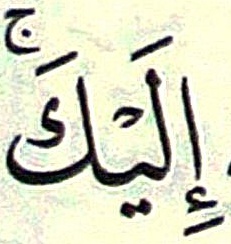 إِلَيْكَ ۚ